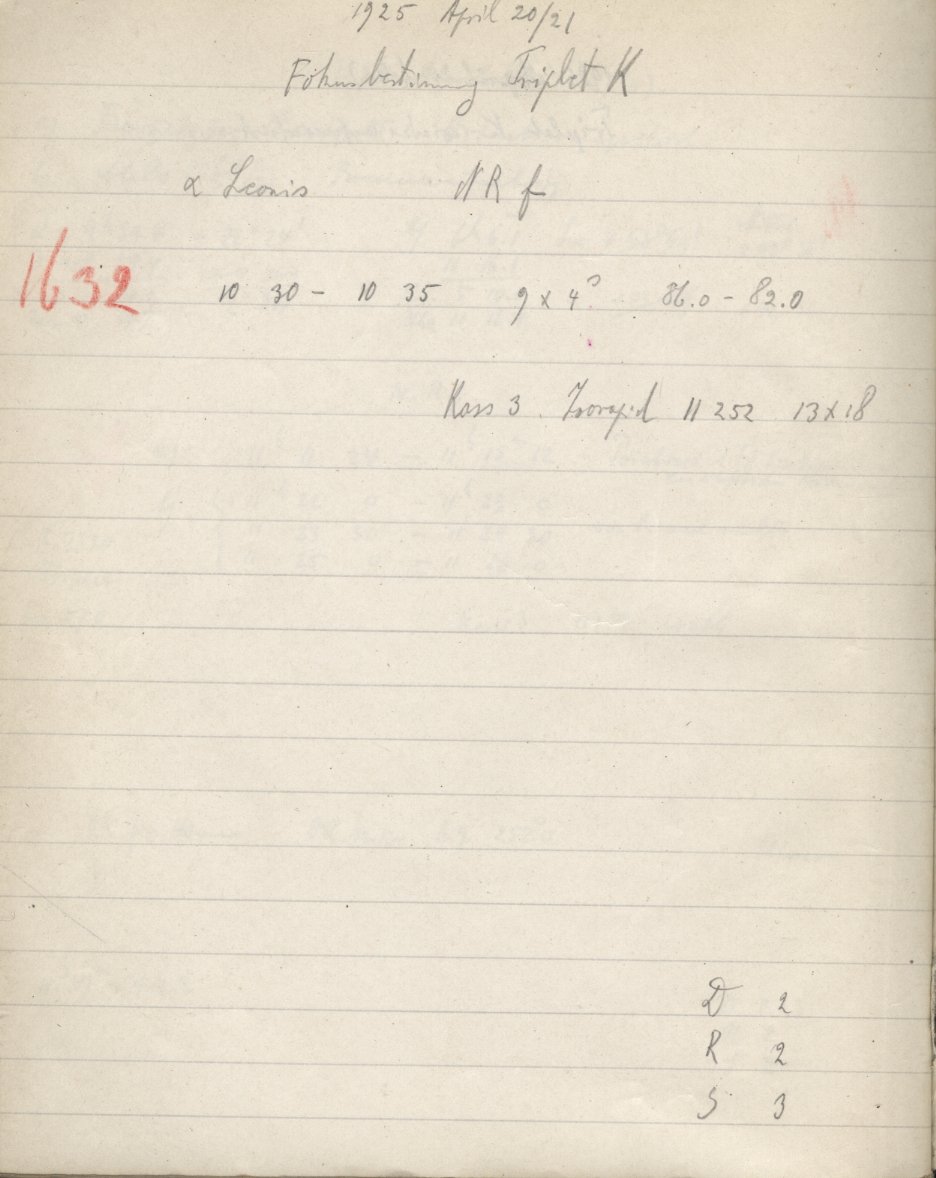 1925 April 20/21
Fokusbestimmung Triplet K
α Leonis NR f
1632 10 30 - 10 35 9 x 4? 86.0 - 82.0
Kass 3. Isorapid 11 252 13x18
D 2
R 2
S 3